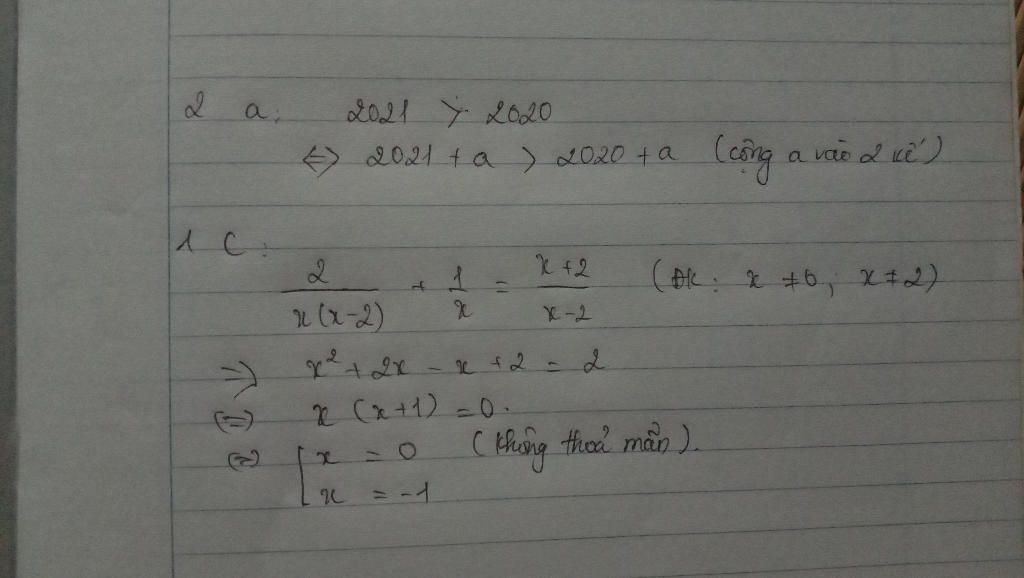 2 a: 2021 > 2020
<=> 2021 + a > 2020 + a (cộng a vào 2 vế)
1 C:
2/(x(x-2)) + 1/x = (x+2)/(x-2) (ĐK: x ≠ 0; x ≠ 2)
=> x² + 2x - x + 2 = 2
<=> x (x+1) = 0.
<=> [ x = 0 (không thoả mãn).
x = -1